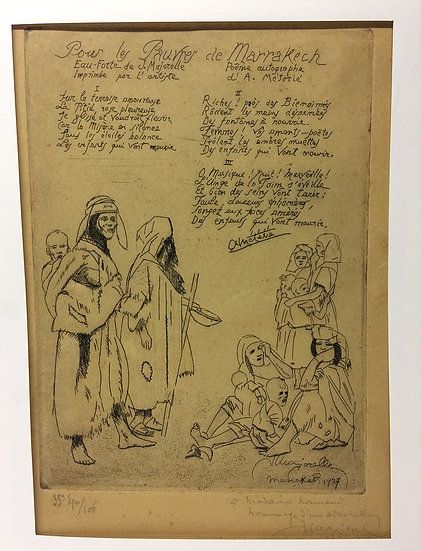 Pour les Pauvres de Marrakech
Eau-Forte de J. Majorelle
Imprimée par l'artiste
Poème autographe
d'A. Métérié
I
Sur la terrasse amoureuse
La Pitié rose pleureuse
Je glisse et voudrait fleurir
Car la Misère en silence
Sous les étoiles balance
Les enfants qui vont mourir.
II
Riches! près des Bienaimées
Rôdent les mains désarmées
De fantômes à nourrir.
Femmes! Vos amants-poètes
Frôlent les ombres muettes
Des enfants qui vont mourir.
III
O Musique! Nuit! Merveille!
L'Ange de la Faim s'éveille
Et bien des seins vont tarir:
Toute douceurs éphémères
Songez aux mères
Des enfants qui vont mourir.
A Métérié
J Majorelle
Marrakech 1927
35e
/100
à Madame
hommage d'un admirateur
J Majorelle